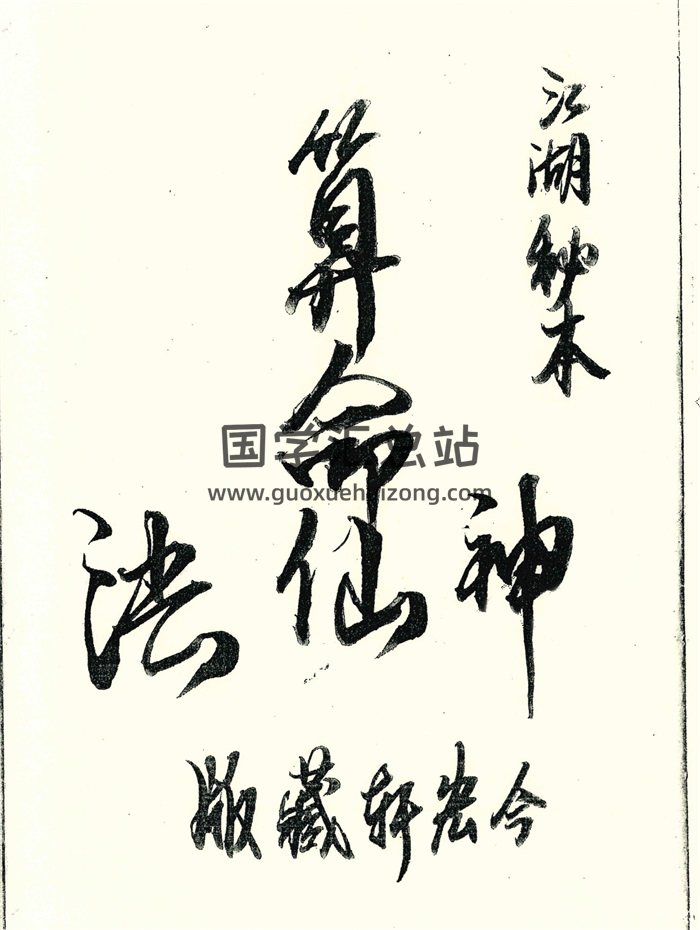 江湖秘本
算命
神仙法
今宏轩藏版
国学汇总站
www.guoxuehuizong.com